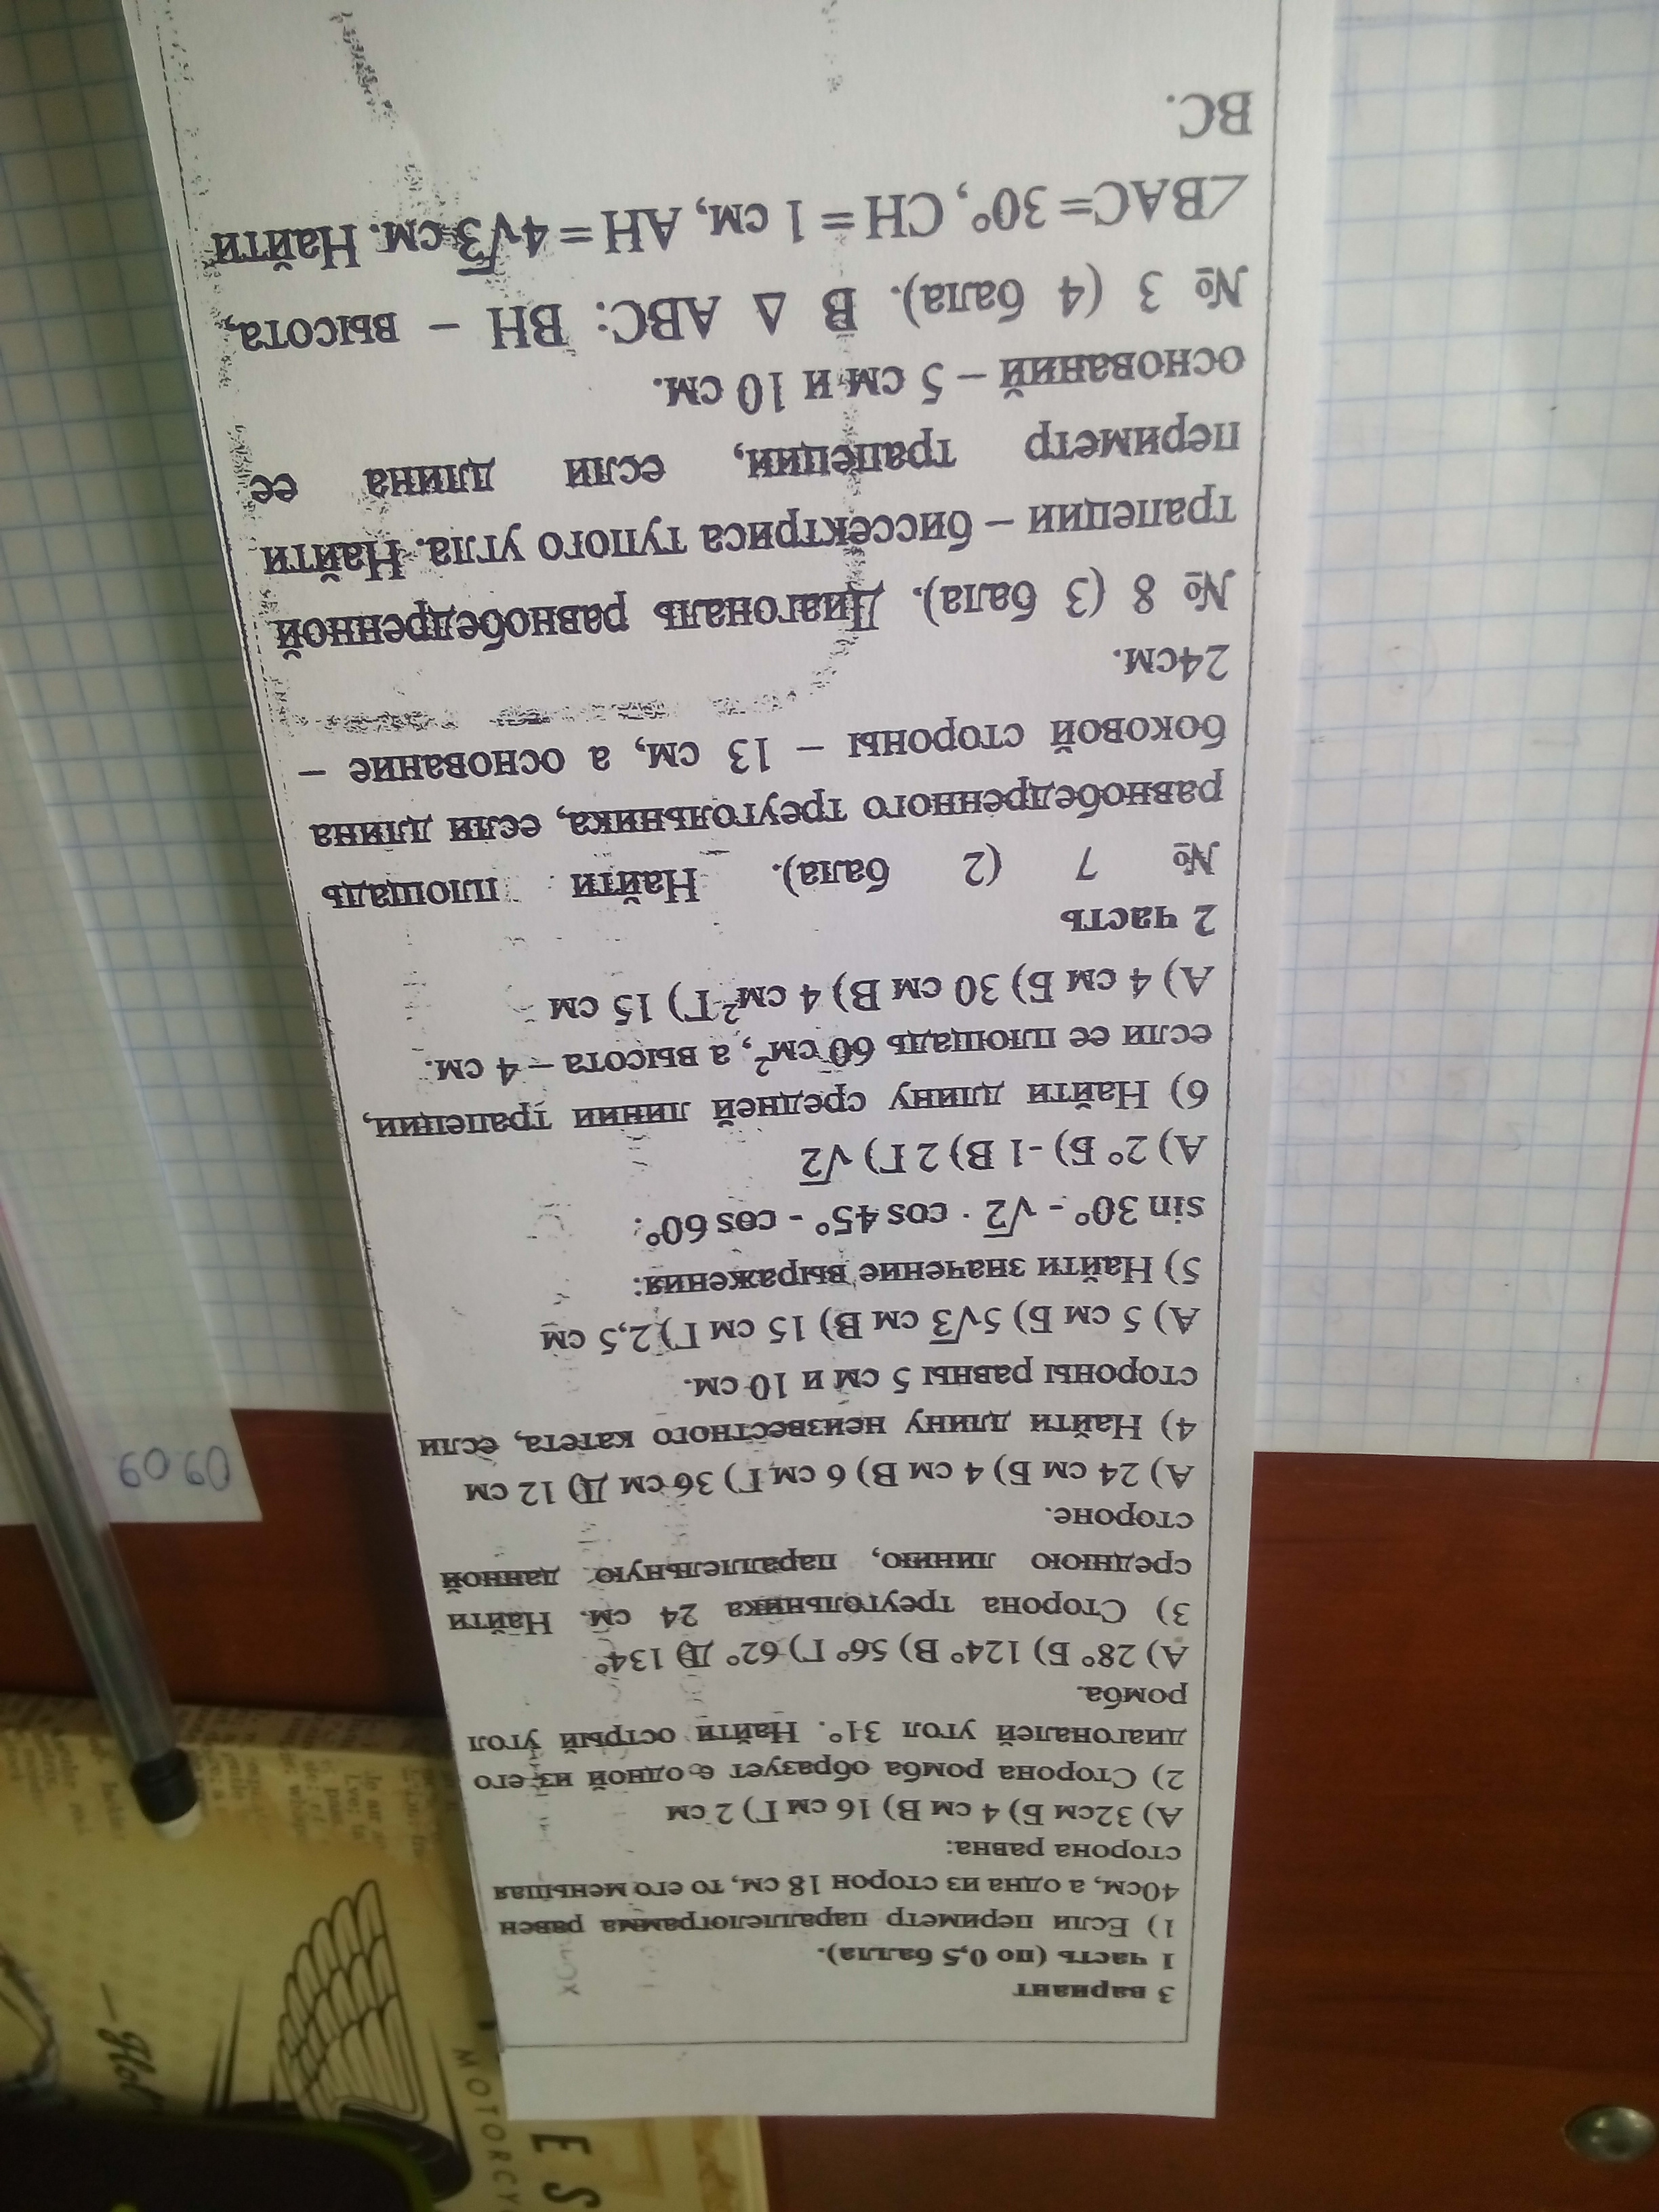 3 вариант
1 часть (по 0,5 балла).
1) Если периметр параллелограмма равен
40см, а одна из сторон 18 см, то его меньшая
сторона равна:
А) 32см Б) 4 см В) 16 см Г) 2 см
2) Сторона ромба образует с одной из его
диагоналей угол 31°. Найти острый угол
ромба.
А) 28° Б) 124° В) 56° Г) 62° Д) 134°
3) Сторона треугольника 24 см. Найти
среднюю линию, параллельную данной
стороне.
А) 24 см Б) 4 см В) 6 см Г) 36 см Д) 12 см
4) Найти длину неизвестного катета, если
стороны равны 5 см и 10 см.
А) 5 см Б) 5√3 см В) 15 см Г) 2,5 см
5) Найти значение выражения:
sin 30° - √2 · cos 45° - cos 60°.
А) 2° Б) -1 В) 2 Г) √2
6) Найти длину средней линии трапеции,
если ее площадь 60 см², а высота – 4 см.
А) 4 см Б) 30 см В) 4 см² Г) 15 см
2 часть
№ 7 (2 бала). Найти площадь
равнобедренного треугольника, если длина
боковой стороны – 13 см, а основание –
24см.
№ 8 (3 бала). Диагональ равнобедренной
трапеции – биссектриса тупого угла. Найти
периметр трапеции, если длина ее
оснований – 5 см и 10 см.
№ 3 (4 бала). В Δ ABC: BH – высота,
∠BAC= 30°, CH = 1 см, AH = 4√3 см. Найти
BC.
09.09
MOTORCY
ES